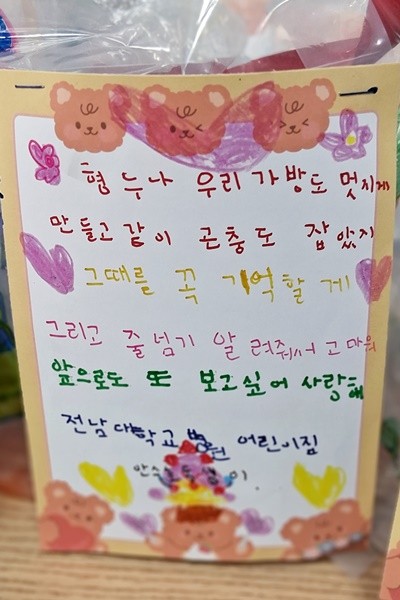 형 누나 우리 가방도 멋지게
만들고 같이 곤충도 잡았지
그때를 꼭 기억할게
그리고 줄넘기 알려줘서 고마워
앞으로도 또 보고싶어 사랑해
전남대학교병원 어린이집